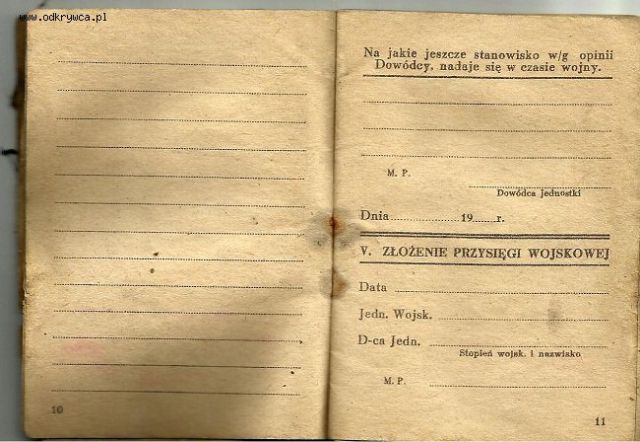 www.odkrywca.pl
10
Na jakie jeszcze stanowisko w/g opinii
Dowódcy, nadaje się w czasie wojny.
M. P.
Dowódca Jednostki
Dnia 19 r.
V. ZŁOŻENIE PRZYSIĘGI WOJSKOWEJ
Data
Jedn. Wojsk.
D-ca Jedn.
Stopień wojsk. i nazwisko
M. P.
11